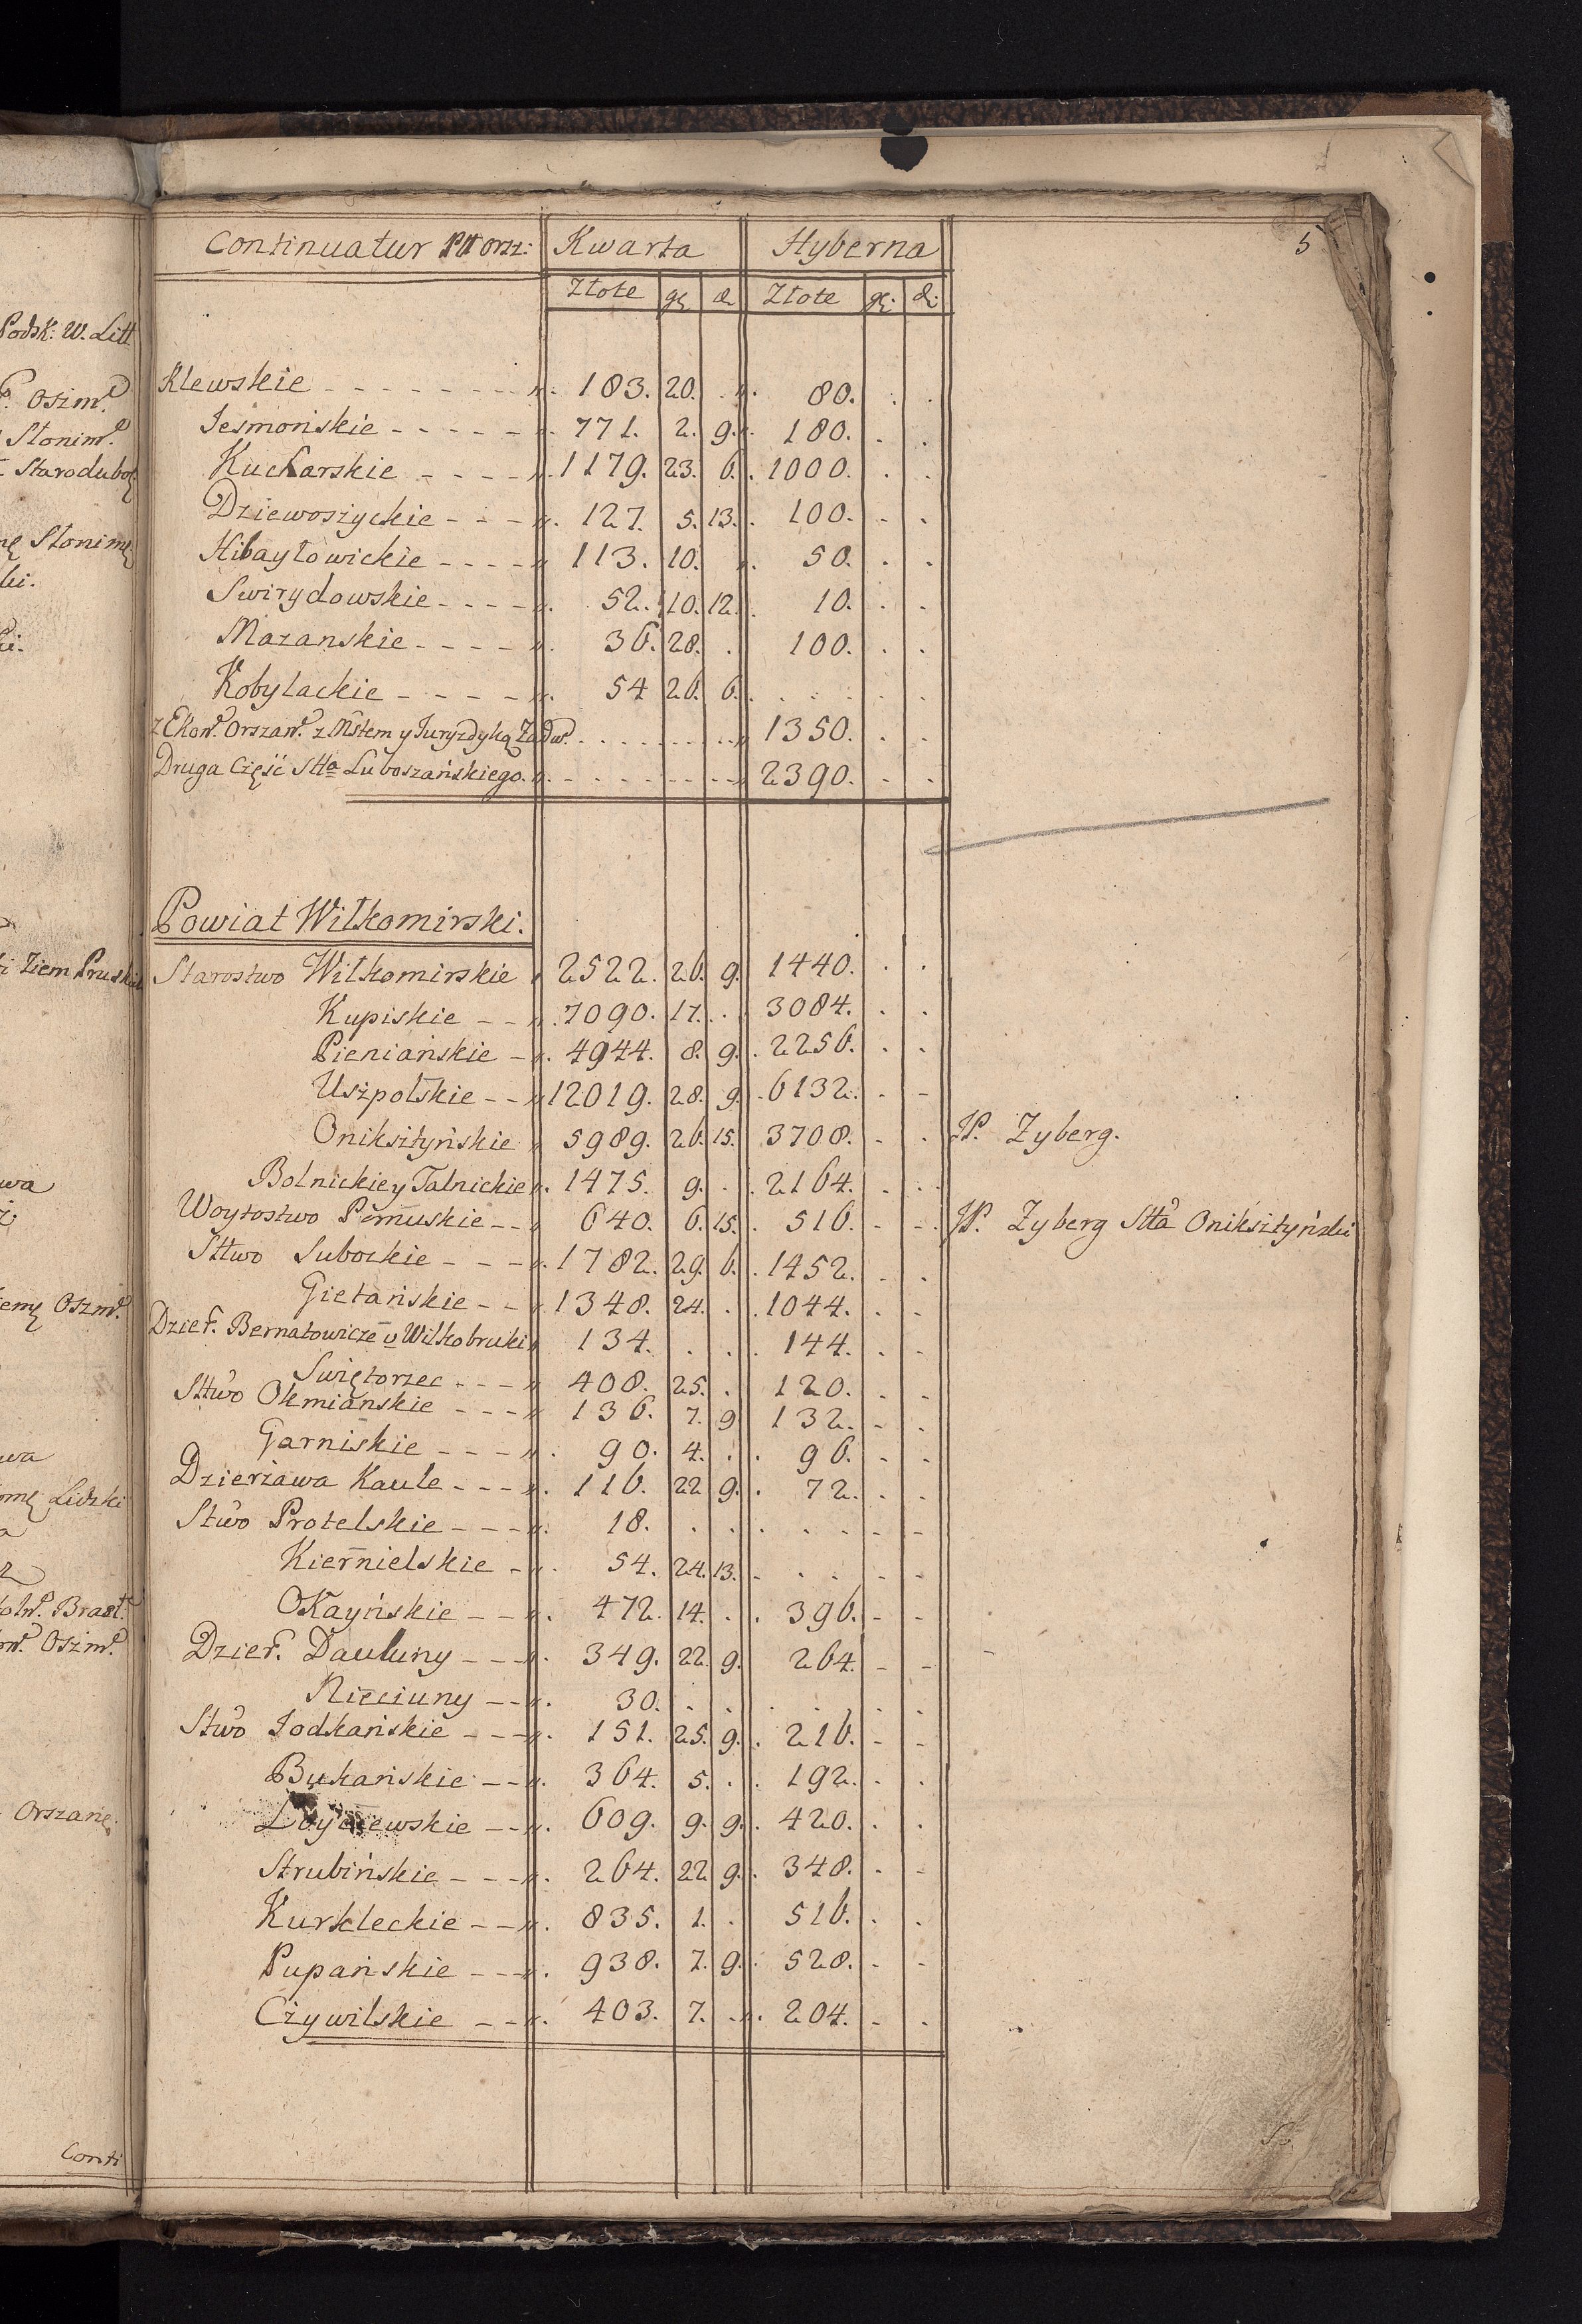 Podsk: W. Litt
Oszmꝰ
Słonimꝰ
Starodubo
Słonimę
ki.
Ziem Pruski
wa
Oszmꝰ
wa
Lidzki
Brast:
Oszmꝰ
Orszanę
Conti
Continuatur Ptt Orsz: Kwarta Hyberna 5
Złote gę d. Złote gę: d:
Klewskie - - - - - - - „. 183. 20. . „. 80. . .
Jesmońskie - - - - - „. 771. 2. 9. „. 180. . .
Kucharskie - - - - „. 1179. 23. 6. . 1000. . .
Dziewoszyckie - - - „. 127. 5. 13. . 100. - .
Hibayłowickie - - - - „ 113. 10. „. 50. . .
Swirydowskie - - - - „. 52. 10. 12. . 10. . .
Mazanskie - - - - „. 36. 28. . 100. . .
Kobylackie - - - - „. 54 26. 6. . . . . .
z Ekonꝰ. Orszanꝰ. z Mstem y Juryzdyką Zadwꝰ. . . . . . . . . „ 1350. . .
Druga Część Stta Luboszańskiego. „. - - - - - - - „ 2390. - .
Powiat Wiłkomirski.
Starostwo Wiłkomirskie „ 2522. 26. 9. 1440. . .
Kupiskie - - „. 7090. 17. . . 3084. . .
Pieniańskie - „. 4944. 8. 9. . 2256. . .
Uszpolskie - - „ 12019. 28. 9. . 6132. - -
Oniksztyńskie „ 5989. 26. 15. 3708. - . JP. Zyberg.
Bolnickie y Talnickie „. 1475. 9. . . 2164. . .
Woytostwo Pęmuskie - - „ 640. 6. 15. . 516. - - . JP. Zyberg Stta Oniksztyński
Sttwo Subockie - - - „. 1782. 29. 6. . 1452. - .
Gietańskie - - „. 1348. 24. . . 1044. - -
Dzierꝰ. Bernatowicze v Wiłkobruki „ 134. . . . 144. - -
Swiętorzec - - - „ 408. 25. . 120. - -
Sttwo Ołmianskie - - - „ 136. 7. 9 132. - .
Garniskie - - - „. 90. 4. . . 96. - -
Dzierżawa Kaule - - - „. 116. 22 9. . 72. . .
Stwo Protelskie - - - „. 18. . . . . - - - -
Kiernielskie - „. 54. 24. 13. - . . - -
Okayńskie - - „. 472. 14. . . 396. - -
Dzierꝰ. Dauluny - - - „. 349. 22. 9. 264. - -
Nieciuny - - „. 30. . . . . . .
Stwo Jodkańskie - - - „. 151. 25. 9. . 216. - -
Bukańskie - - „. 364. 5. . . 192. . .
Łoyczewskie - - „. 609. 9. 9. . 420. . .
Strubińskie - - - „. 264. 22 9. . 348. . -
Kurkleckie - - „. 835. 1. . 516. . .
Pupańskie - - - „. 938. 7. 9. . 528. - -
Czywilskie - - „. 403. 7. . „. 204. - .